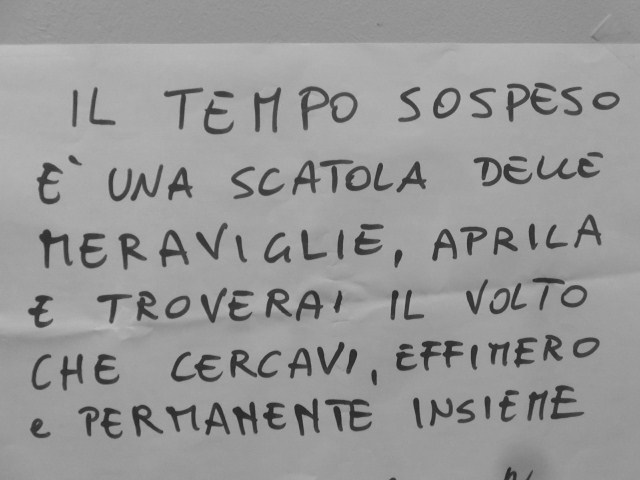 IL TEMPO SOSPESO
E` UNA SCATOLA DELLE
MERAVIGLIE, APRILA
E TROVERAI IL VOLTO
CHE CERCAVI, EFFIMERO
e PERMANENTE INSIEME